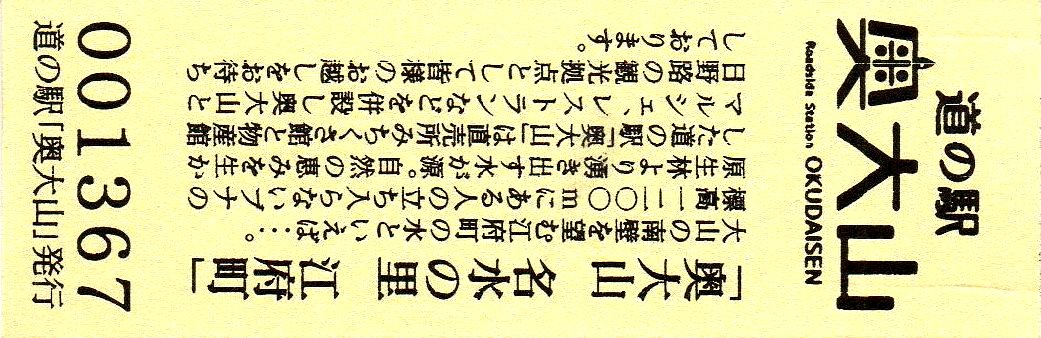 道の駅
奥大山
Roadside Station OKUDAISEN
「奥大山 名水の里 江府町」
大山の南壁を望む江府町の水といえば…。
標高一二〇〇mにある人の立ち入らないブナの
原生林より湧き出す水が源。自然の恵みを生か
した道の駅「奥大山」は直売所みちくさ館と物産館
マルシェ、レストランなどを併設し奥大山と
日野路の観光拠点として皆様のお越しをお待ち
しております。
001367
道の駅「奥大山」発行